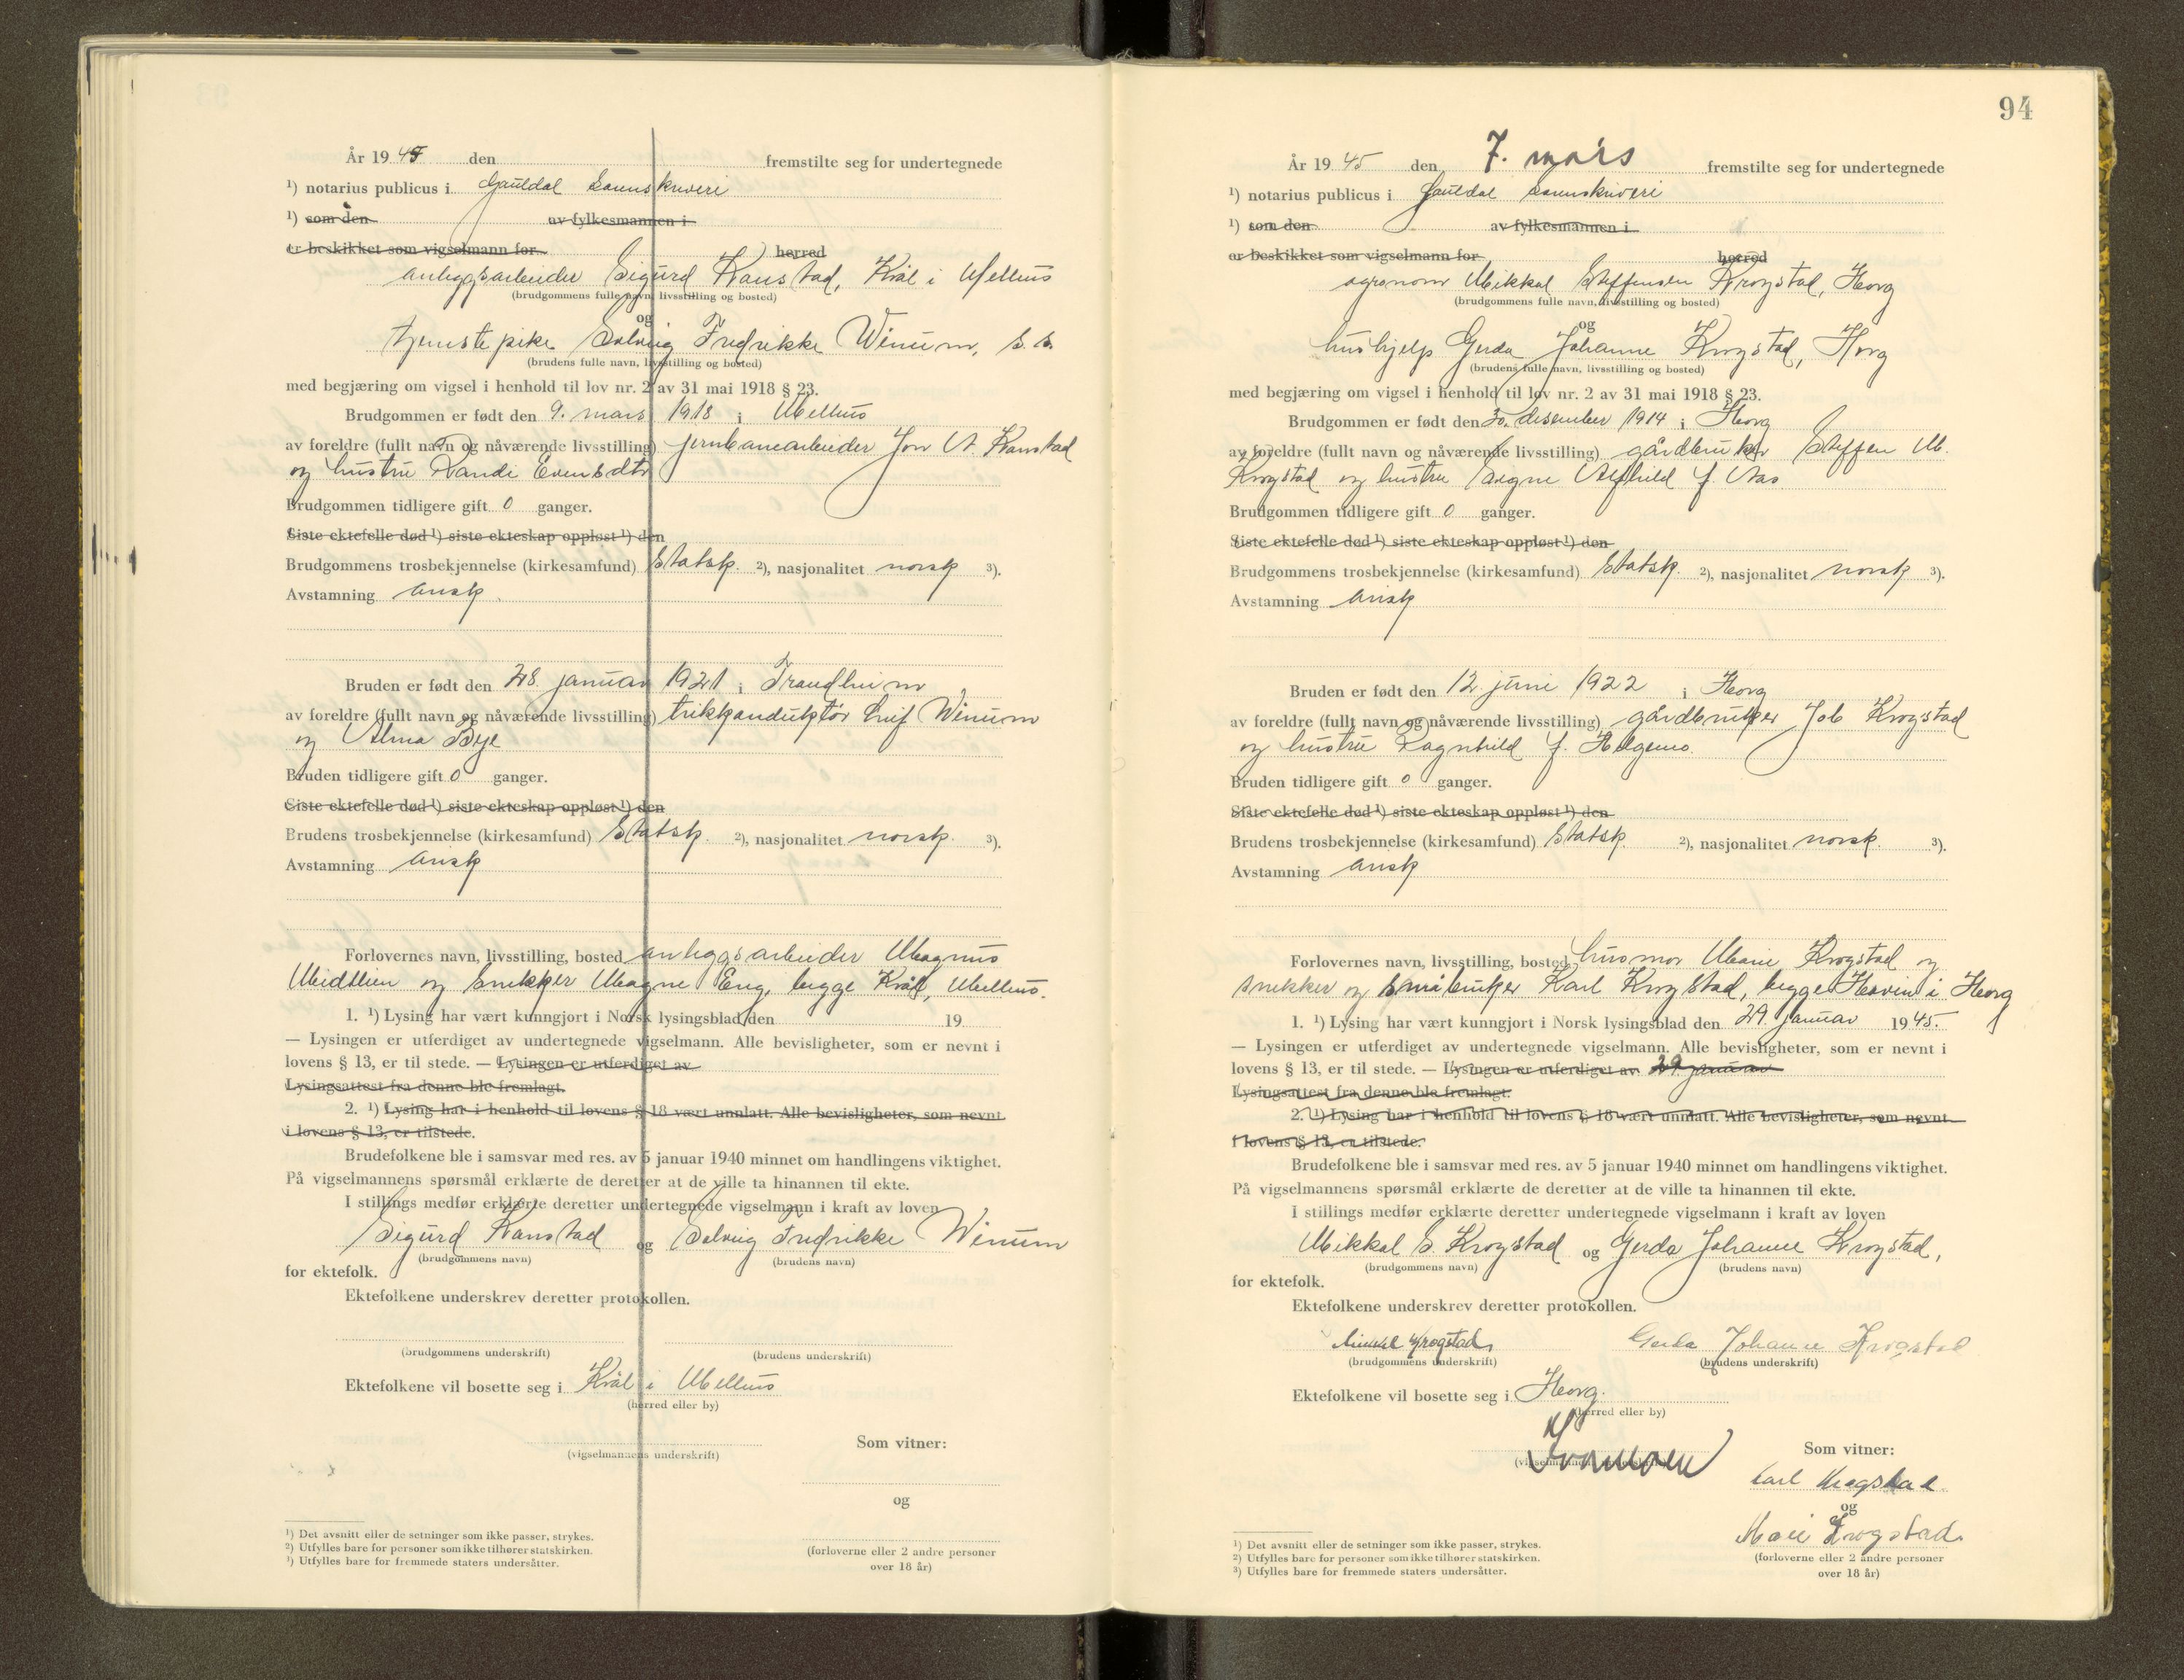 År 1945 den fremstilte seg for undertegnede
¹) notarius publicus i Gauldal Sorenskriveri
¹) som den av fylkesmannen i
er beskikket som vigselmann for herred
anleggsarbeider Sigurd Kanstad, Kvål i Melhus
(brudgommens fulle navn, livsstilling og bosted)
og
tjenstepike Solveig Fredrikke Winum, s. s.
(brudens fulle navn, livsstilling og bosted)
med begjæring om vigsel i henhold til lov nr. 2 av 31 mai 1918 § 23.
Brudgommen er født den 9. mars 1918 i Melhus
av foreldre (fullt navn og nåværende livsstilling) jernbanearbeider Jon A. Kanstad
og hustru Randi Evensdtr
Brudgommen tidligere gift 0 ganger.
Siste ektefelle død ¹) siste ekteskap oppløst ¹) den
Brudgommens trosbekjennelse (kirkesamfund) Statsk. ²), nasjonalitet norsk ³).
Avstamning arisk
Bruden er født den 28. januar 1921 i Trondheim
av foreldre (fullt navn og nåværende livsstilling) trikkonduktør Leif Winum
og Alma Bye
Bruden tidligere gift 0 ganger.
Siste ektefelle død ¹) siste ekteskap oppløst ¹) den
Brudens trosbekjennelse (kirkesamfund) Statsk. ²), nasjonalitet norsk. ³).
Avstamning arisk
Forlovernes navn, livsstilling, bosted anleggsarbeider Magnus
Midtlien og snekker Magne Eng, begge Kvål, Melhus.
1. ¹) Lysing har vært kunngjort i Norsk lysingsblad den 19
— Lysingen er utferdiget av undertegnede vigselmann. Alle bevisligheter, som er nevnt i
lovens § 13, er til stede. — Lysingen er utferdiget av
Lysingsattest fra denne ble fremlagt.
2. ¹) Lysing har i henhold til lovens § 18 vært unnlatt. Alle bevisligheter, som nevnt
i lovens § 13, er tilstede.
Brudefolkene ble i samsvar med res. av 5 januar 1940 minnet om handlingens viktighet.
På vigselmannens spørsmål erklærte de deretter at de ville ta hinannen til ekte.
I stillings medfør erklærte deretter undertegnede vigselmann i kraft av loven
Sigurd Kanstad og Solveig Fredrikke Winum
(brudgommens navn) (brudens navn)
for ektefolk.
Ektefolkene underskrev deretter protokollen.
(brudgommens underskrift) (brudens underskrift)
Ektefolkene vil bosette seg i Kvål i Melhus
(herred eller by)
Som vitner:
(vigselmannens underskrift)
og
(forloverne eller 2 andre personer
over 18 år)
¹) Det avsnitt eller de setninger som ikke passer, strykes.
²) Utfylles bare for personer som ikke tilhører statskirken.
³) Utfylles bare for fremmede staters undersåtter.
94
År 1945 den 7. mars fremstilte seg for undertegnede
¹) notarius publicus i Gauldal sorenskriveri
¹) som den av fylkesmannen i
er beskikket som vigselmann for herred
agronom Mikkal Steffensen Krogstad, Horg
(brudgommens fulle navn, livsstilling og bosted)
og
hushjelp Gerda Johanne Krogstad, Horg
(brudens fulle navn, livsstilling og bosted)
med begjæring om vigsel i henhold til lov nr. 2 av 31 mai 1918 § 23.
Brudgommen er født den 30. desember 1914 i Horg
av foreldre (fullt navn og nåværende livsstilling) gårdbruker Steffen M.
Krogstad og hustru Signe Alfhild f. Aas
Brudgommen tidligere gift 0 ganger.
Siste ektefelle død ¹) siste ekteskap oppløst ¹) den
Brudgommens trosbekjennelse (kirkesamfund) Statsk. ²), nasjonalitet norsk ³).
Avstamning arisk
Bruden er født den 12. juni 1922 i Horg
av foreldre (fullt navn og nåværende livsstilling) gårdbruker Job Krogstad
og hustru Ragnhild f. Helgemo.
Bruden tidligere gift 0 ganger.
Siste ektefelle død ¹) siste ekteskap oppløst ¹) den
Brudens trosbekjennelse (kirkesamfund) Statsk. ²), nasjonalitet norsk. ³).
Avstamning arisk
Forlovernes navn, livsstilling, bosted husmor Marie Krogstad og
snekker og småbruker Karl Krogstad, begge Hovin i Horg
1. ¹) Lysing har vært kunngjort i Norsk lysingsblad den 29. januar 1945.
— Lysingen er utferdiget av undertegnede vigselmann. Alle bevisligheter, som er nevnt i
lovens § 13, er til stede. — Lysingen er utferdiget av 29. januar
Lysingsattest fra denne ble fremlagt.
2. ¹) Lysing har i henhold til lovens § 18 vært unnlatt. Alle bevisligheter, som nevnt
i lovens § 13, er tilstede.
Brudefolkene ble i samsvar med res. av 5 januar 1940 minnet om handlingens viktighet.
På vigselmannens spørsmål erklærte de deretter at de ville ta hinannen til ekte.
I stillings medfør erklærte deretter undertegnede vigselmann i kraft av loven
Mikkal S. Krogstad og Gerda Johanne Krogstad,
(brudgommens navn) (brudens navn)
for ektefolk.
Ektefolkene underskrev deretter protokollen.
Mikkal Krogstad Gerda Johanne Krogstad
(brudgommens underskrift) (brudens underskrift)
Ektefolkene vil bosette seg i Horg.
(herred eller by)
Som vitner:
(vigselmannens underskrift)
Karl Krogstad
og
Marie Krogstad
(forloverne eller 2 andre personer
over 18 år)
¹) Det avsnitt eller de setninger som ikke passer, strykes.
²) Utfylles bare for personer som ikke tilhører statskirken.
³) Utfylles bare for fremmede staters undersåtter.